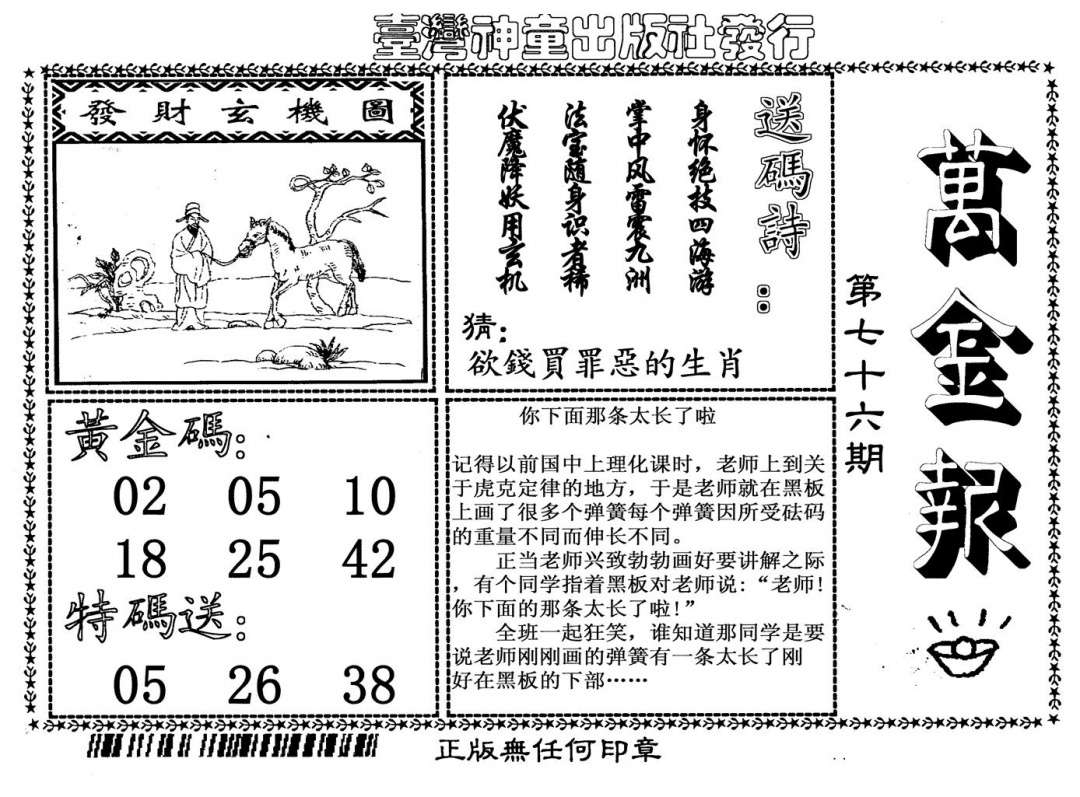 臺灣神童出版社發行
萬金報
第七十六期
發財玄機圖
送碼詩：
身怀绝技四海游
掌中风雷震九洲
法宝随身识者稀
伏魔降妖用玄机
猜：
欲錢買罪惡的生肖
黃金碼：
02 05 10
18 25 42
特碼送：
05 26 38
你下面那条太长了啦
记得以前国中上理化课时，老师上到关
于虎克定律的地方，于是老师就在黑板
上画了很多个弹簧每个弹簧因所受砝码
的重量不同而伸长不同。
正当老师兴致勃勃画好要讲解之际
，有个同学指着黑板对老师说：“老师！
你下面的那条太长了啦！”
全班一起狂笑，谁知道那同学是要
说老师刚刚画的弹簧有一条太长了刚
好在黑板的下部……
正版無任何印章